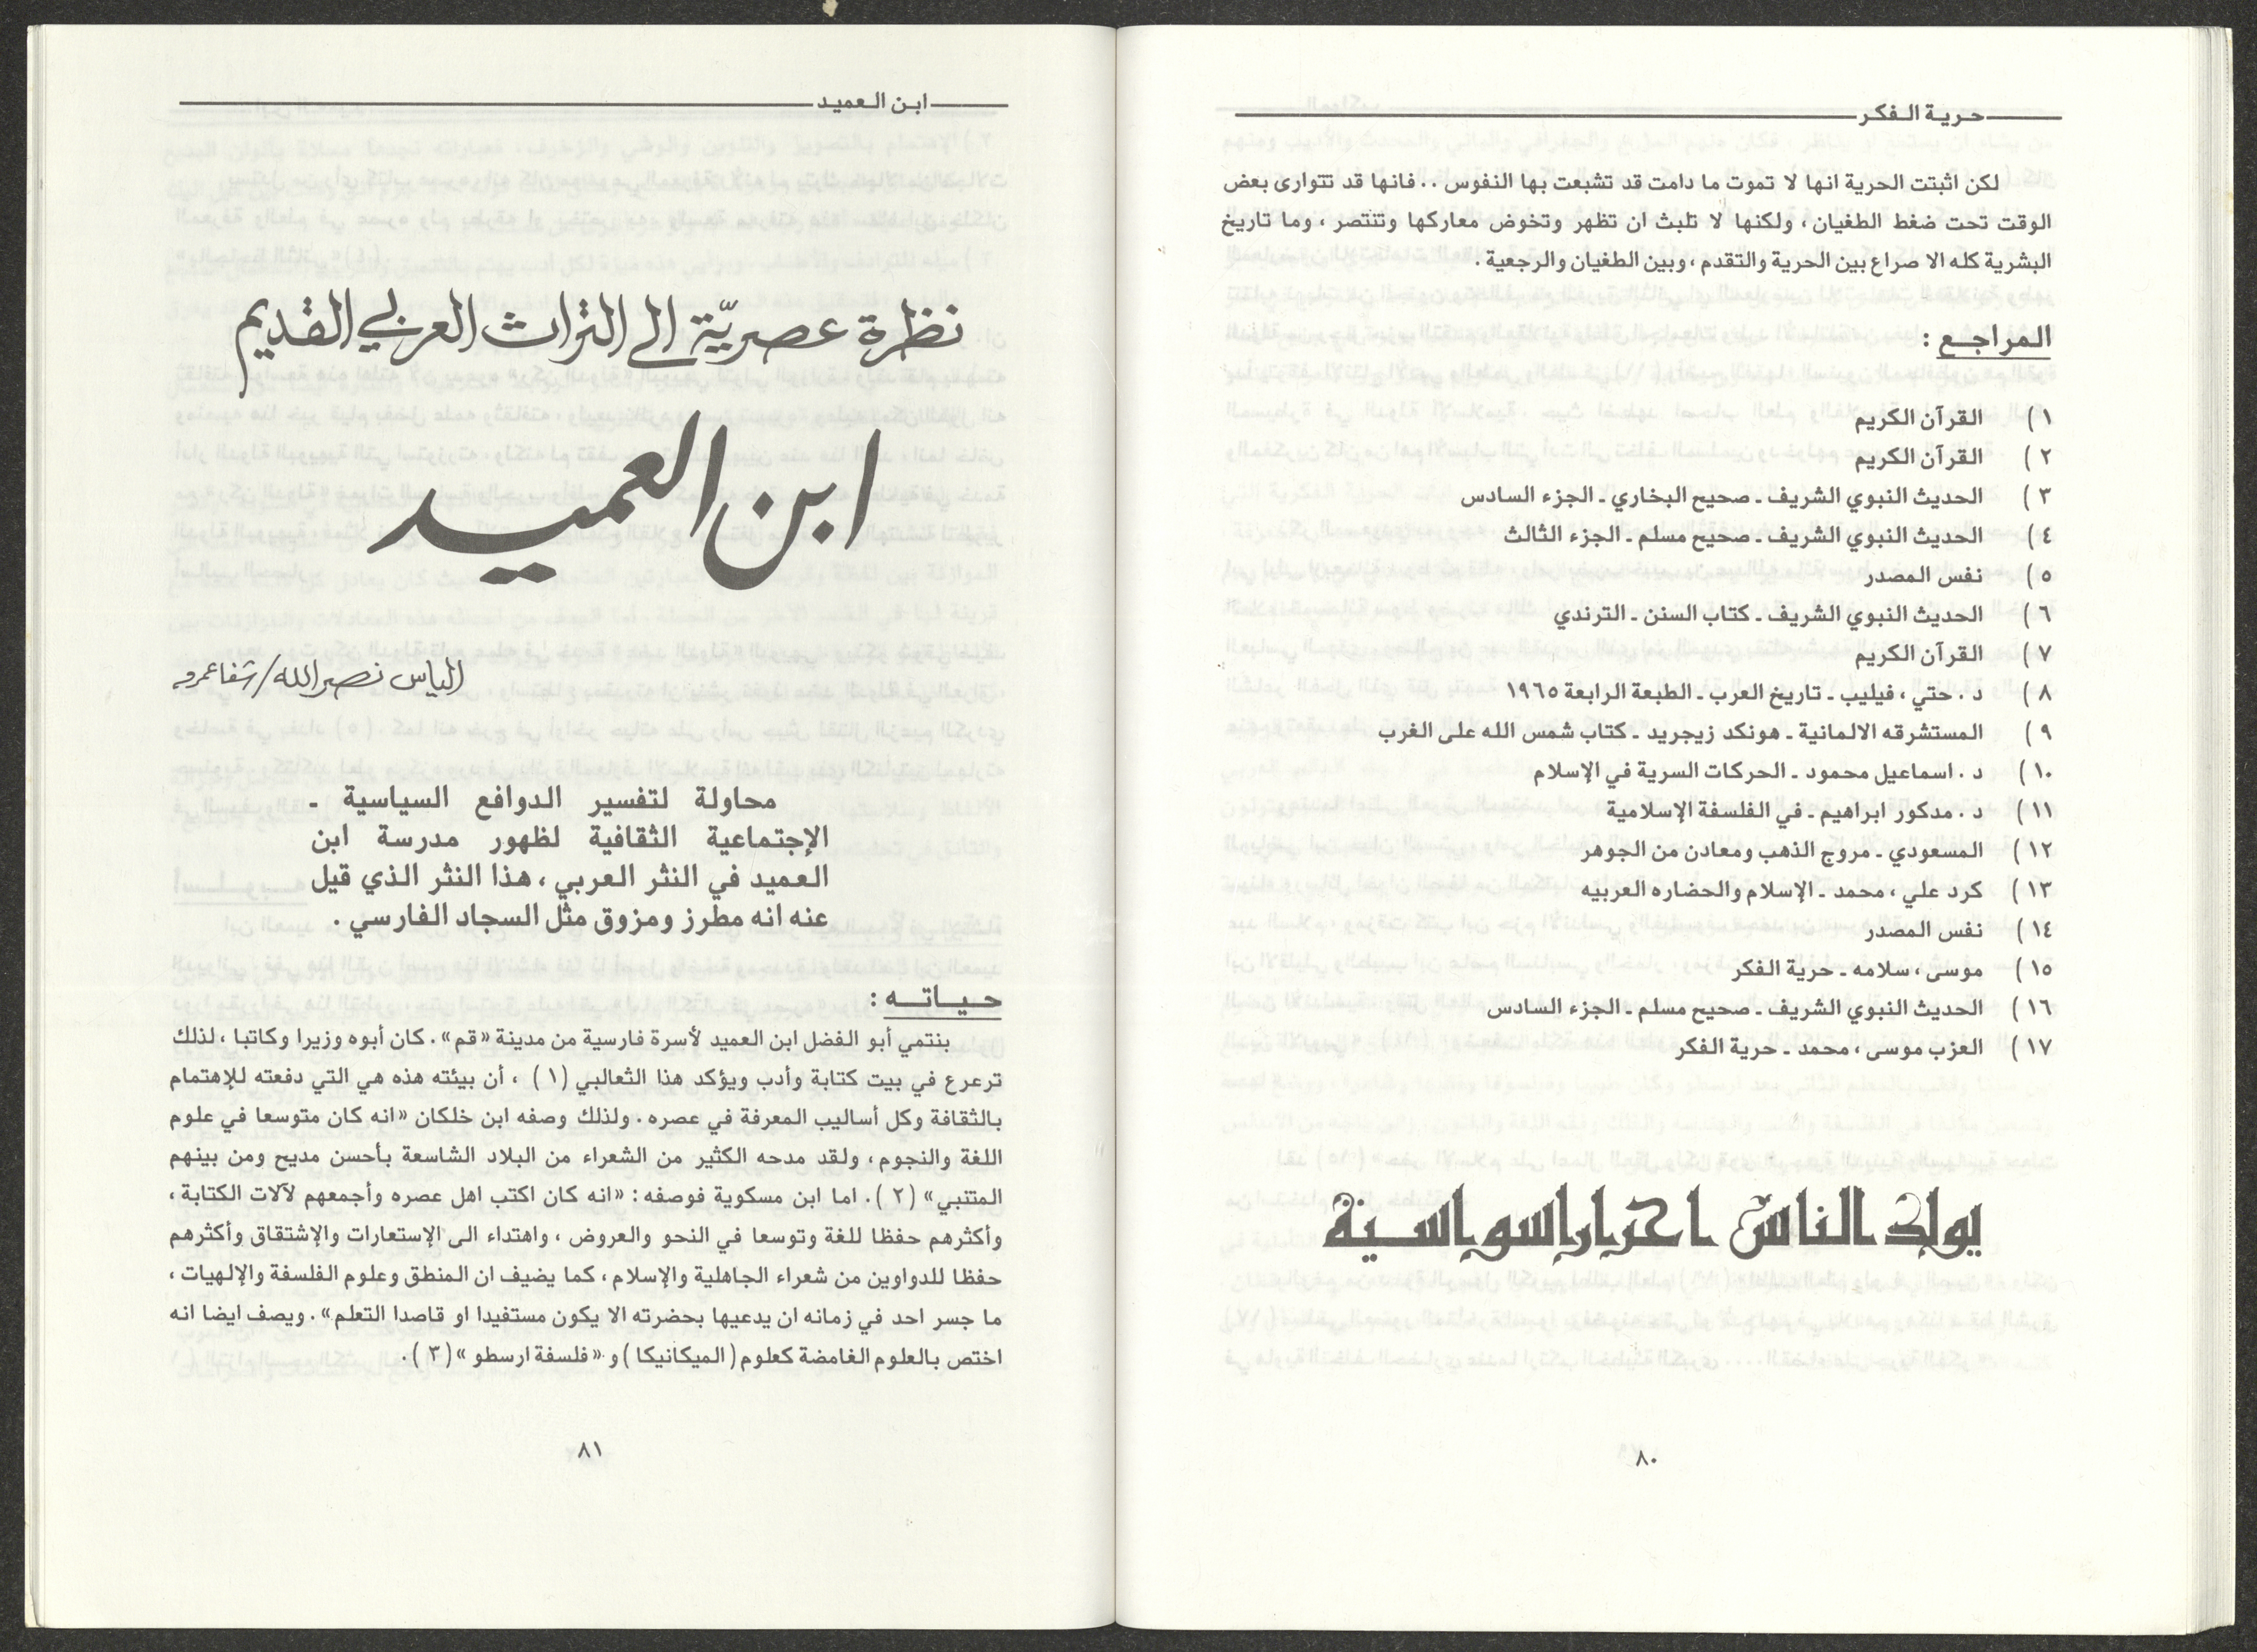 حرية الفكر
لكن اثبتت الحرية انها لا تموت ما دامت قد تشبعت بها النفوس .. فانها قد تتوارى بعض
الوقت تحت ضغط الطغيان ، ولكنها لا تلبث ان تظهر وتخوض معاركها وتنتصر ، وما تاريخ
البشرية كله الا صراع بين الحرية والتقدم ، وبين الطغيان والرجعية .
المراجع :
١ ) القرآن الكريم
٢ ) القرآن الكريم
٣ ) الحديث النبوي الشريف ـ صحيح البخاري ـ الجزء السادس
٤ ) الحديث النبوي الشريف ـ صحيح مسلم ـ الجزء الثالث
٥ ) نفس المصدر
٦ ) الحديث النبوي الشريف ـ كتاب السنن ـ الترندي
٧ ) القرآن الكريم
٨ ) د . حتي ، فيليب ـ تاريخ العرب ـ الطبعة الرابعة ١٩٦٥
٩ ) المستشرقه الالمانية ـ هونكد زيجريد ـ كتاب شمس الله على الغرب
١٠ ) د . اسماعيل محمود ـ الحركات السرية في الإسلام
١١ ) د . مدكور ابراهيم ـ في الفلسفة الإسلامية
١٢ ) المسعودي ـ مروج الذهب ومعادن من الجوهر
١٣ ) كرد علي ، محمد ـ الإسلام والحضاره العربيه
١٤ ) نفس المصدر
١٥ ) موسى ، سلامه ـ حرية الفكر
١٦ ) الحديث النبوي الشريف ـ صحيح مسلم ـ الجزء السادس
١٧ ) العزب موسى ، محمد ـ حرية الفكر
يولد الناس احرارا سواسية
٨٠
ابن العميد
نظرة عصريّة الى التراث العربي القديم
ابن العميد
الياس نصرالله/شفاعمرو
محاولة لتفسير الدوافع السياسية ـ
الإجتماعية الثقافية لظهور مدرسة ابن
العميد في النثر العربي ، هذا النثر الذي قيل
عنه انه مطرز ومزوق مثل السجاد الفارسي .
حياته :
ينتمي أبو الفضل ابن العميد لأسرة فارسية من مدينة «قم» . كان أبوه وزيرا وكاتبا ، لذلك
ترعرع في بيت كتابة وأدب ويؤكد هذا الثعالبي (١) ، أن بيئته هذه هي التي دفعته للإهتمام
بالثقافة وكل أساليب المعرفة في عصره . ولذلك وصفه ابن خلكان «انه كان متوسعا في علوم
اللغة والنجوم ، ولقد مدحه الكثير من الشعراء من البلاد الشاسعة بأحسن مديح ومن بينهم
المتنبي» (٢) . اما ابن مسكوية فوصفه : «انه كان اكتب اهل عصره وأجمعهم لآلات الكتابة ،
وأكثرهم حفظا للغة وتوسعا في النحو والعروض ، واهتداء الى الإستعارات والإشتقاق وأكثرهم
حفظا للدواوين من شعراء الجاهلية والإسلام ، كما يضيف ان المنطق وعلوم الفلسفة والإلهيات ،
ما جسر احد في زمانه ان يدعيها بحضرته الا يكون مستفيدا او قاصدا التعلم» . ويصف ايضا انه
اختص بالعلوم الغامضة كعلوم ( الميكانيكا ) و «فلسفة ارسطو» (٣) .
٨١